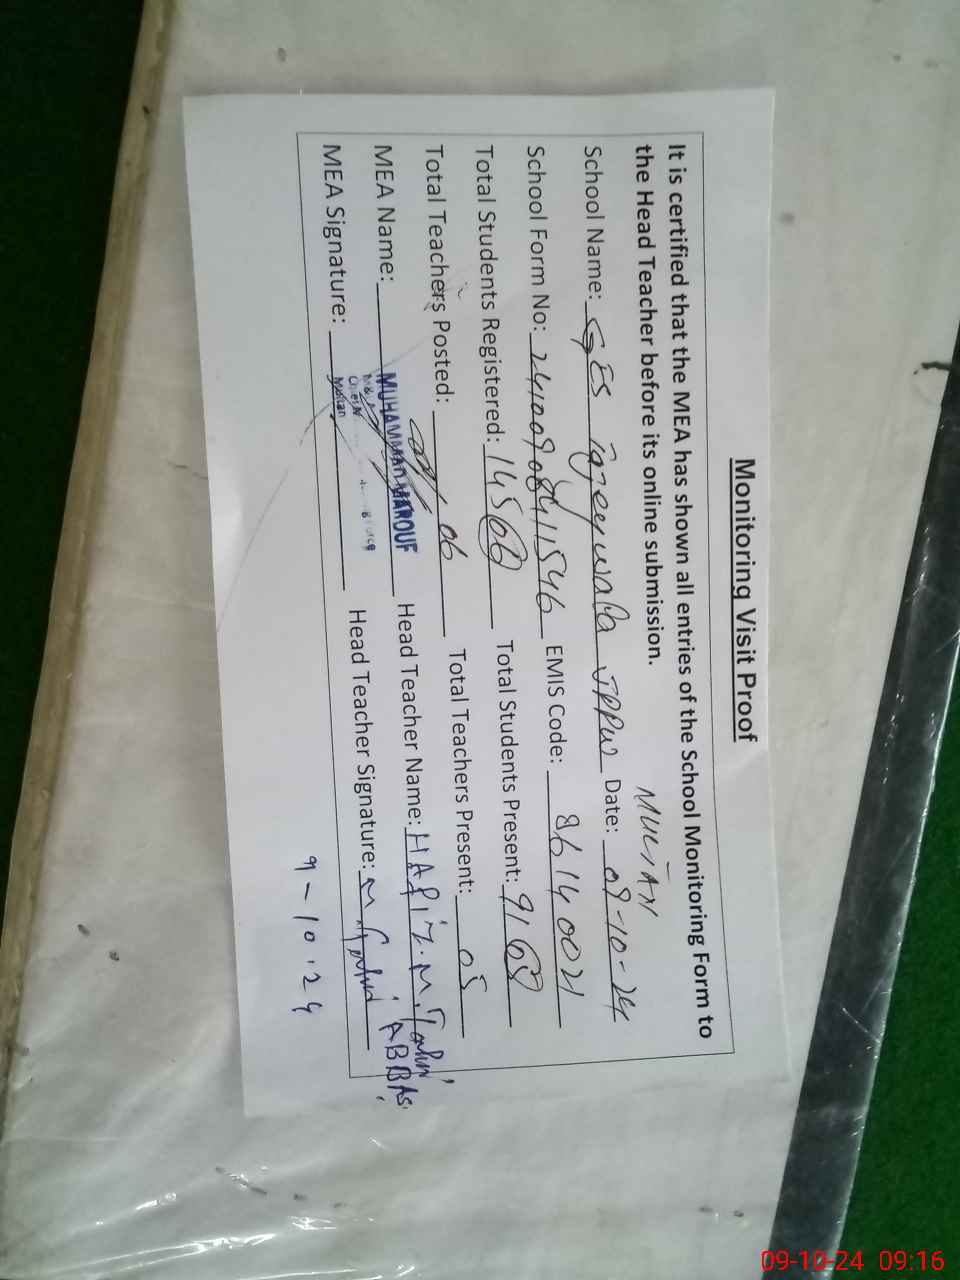 Monitoring Visit Proof
It is certified that the MEA has shown all entries of the School Monitoring Form to
the Head Teacher before its online submission.
MULTAN
School Name: GES Date: 09-10-24
School Form No: EMIS Code: 36140021
Total Students Registered: Total Students Present:
Total Teachers Posted: 06 Total Teachers Present: 05
MEA Name: MUHAMMAD MAROUF Head Teacher Name: HAFIZ. M. Tahir
ABBAS
MEA Signature: Multan Head Teacher Signature:
9-10.24
09-10-24 09:16